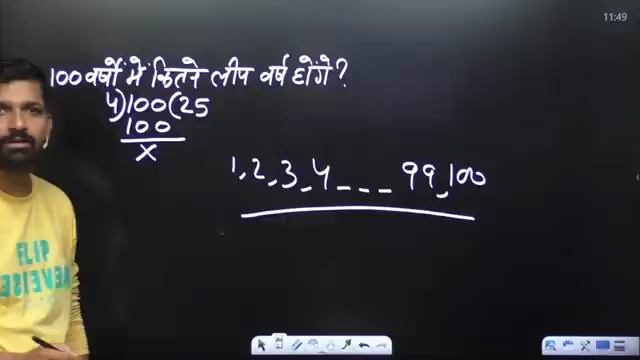 11:49
100 वर्षों में कितने लीप वर्ष होंगे?
4)100(25
100
x
1, 2, 3, 4 _ _ _ 99, 100
FLIP